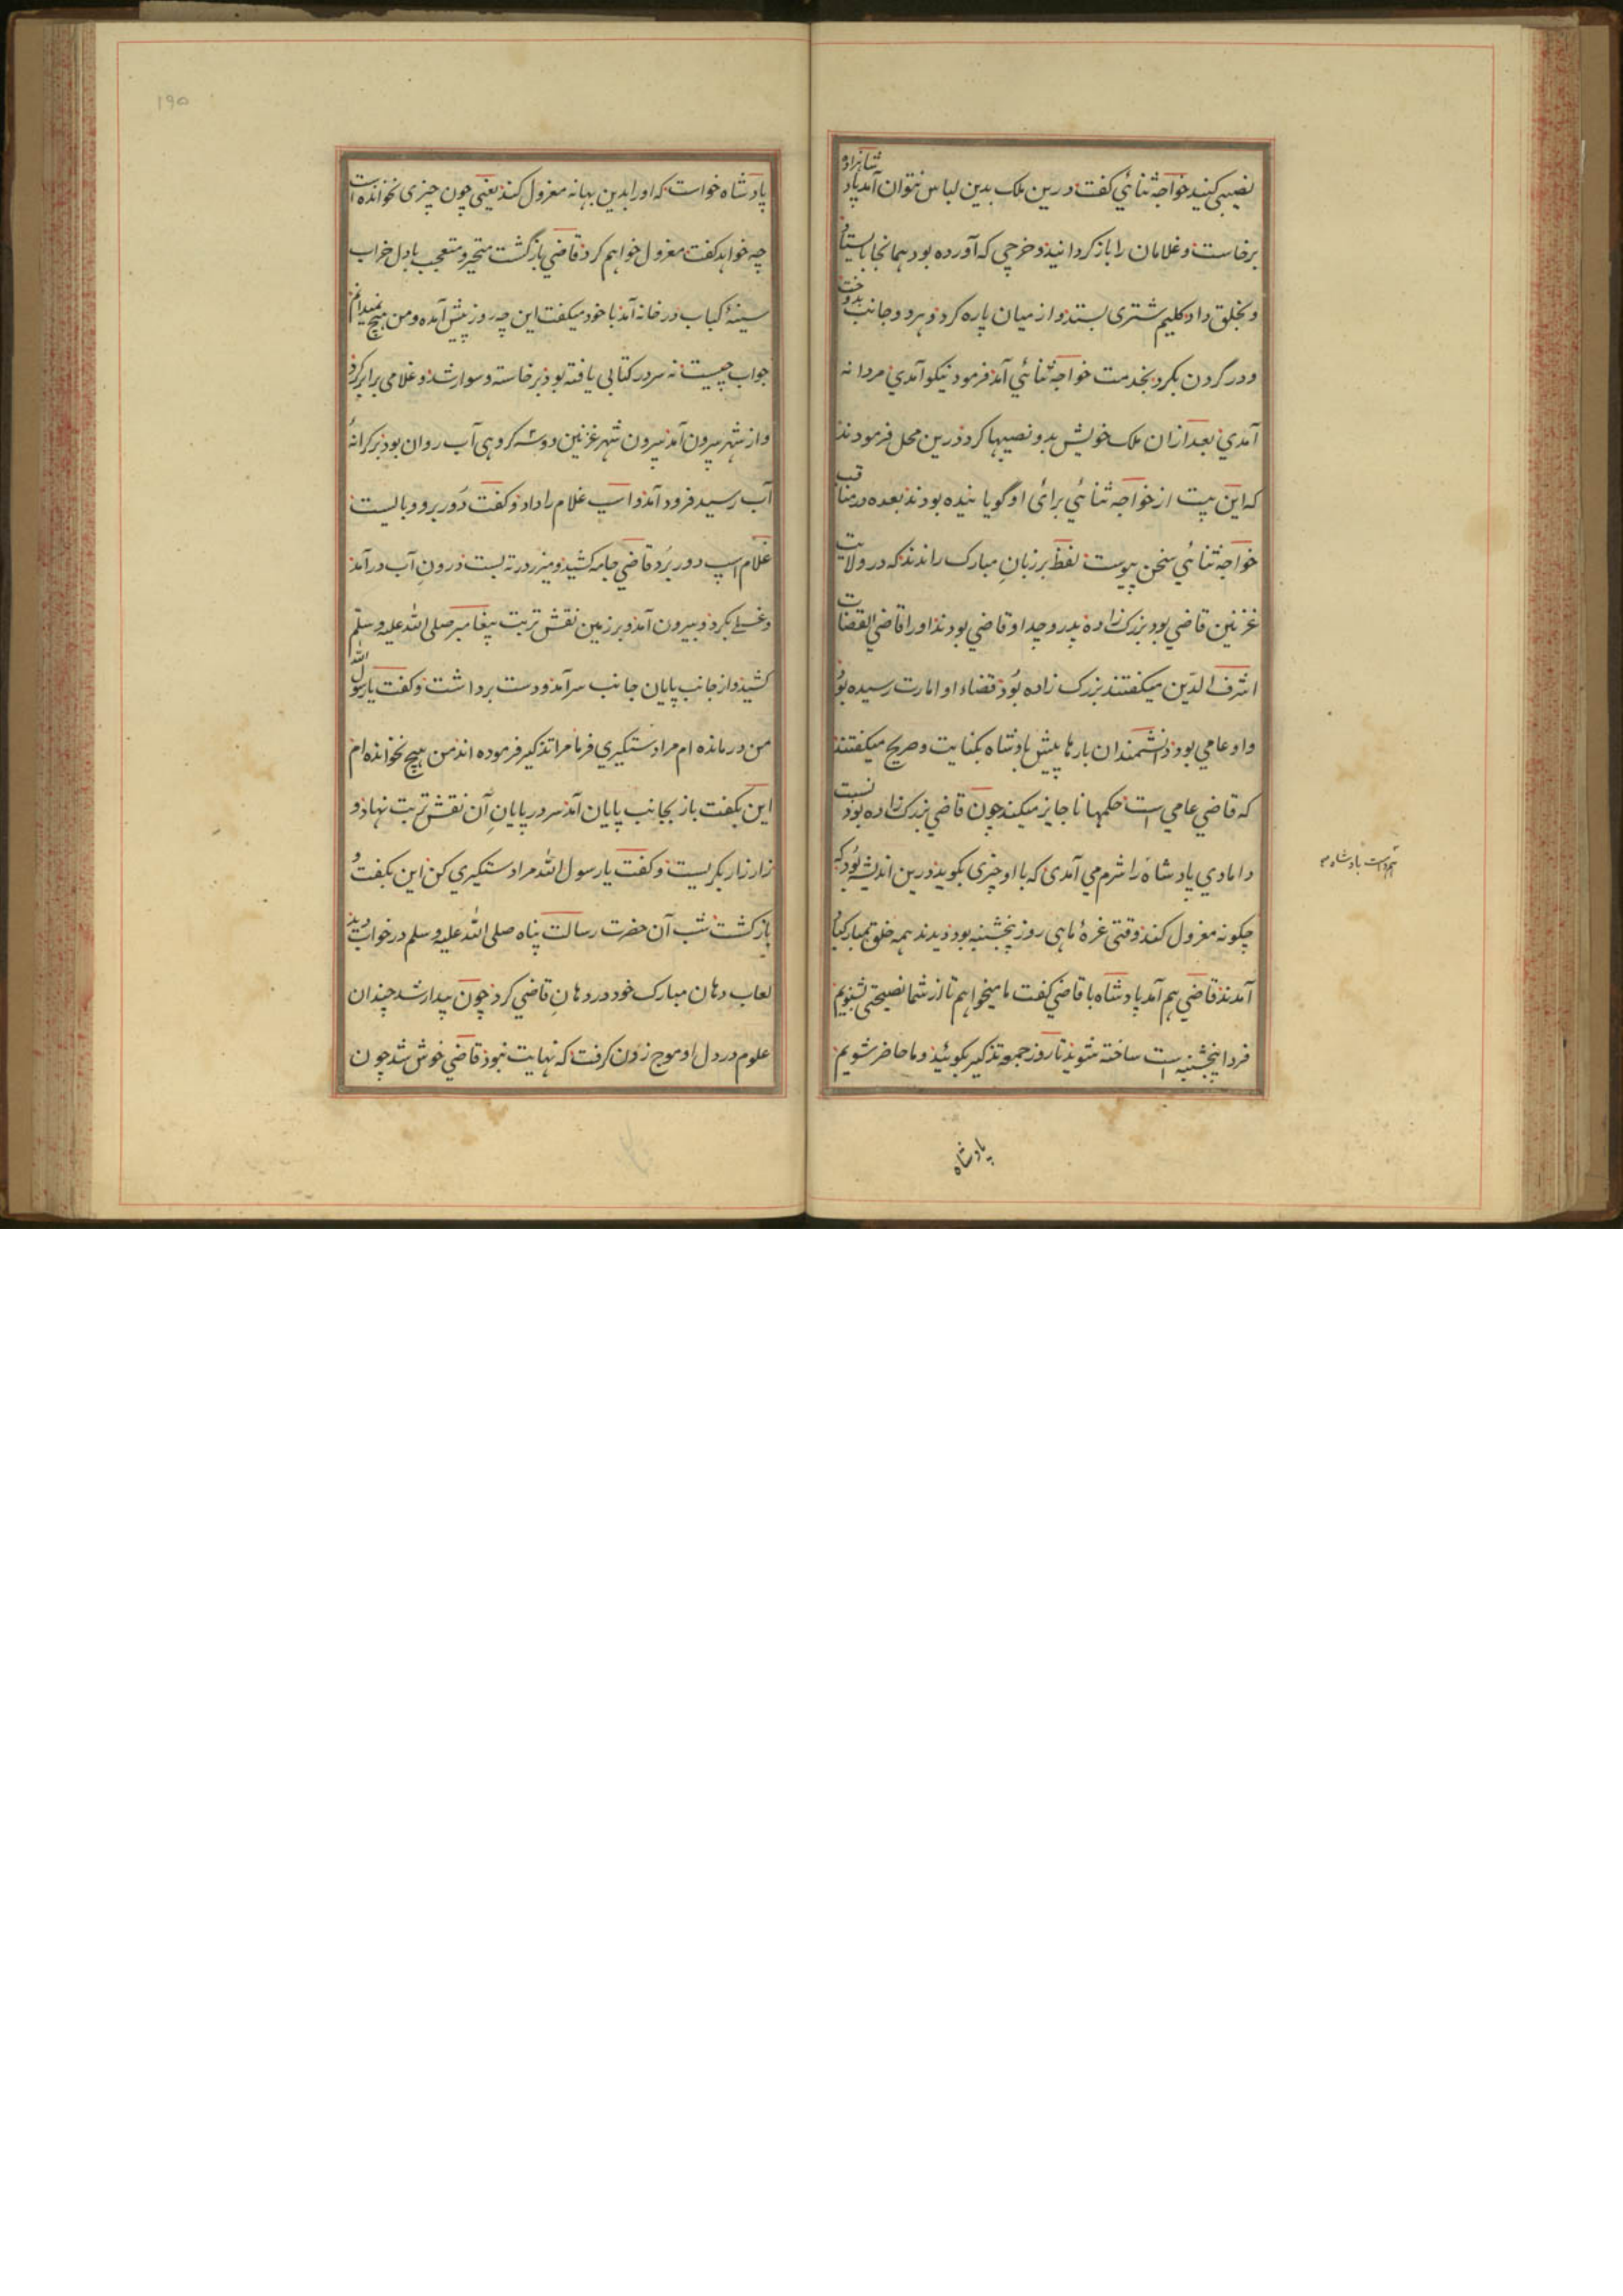 نصیبی کنید خواجه ثنائي کفت درین ملک بدین لباس نتوان آمد پادشاهزاده
برخاست و غلامان را باز کردانید و خرجی که آورده بود همانجا بایستاد
و بخلق داد کلیم شتری بستد و از میان پاره کرد و هر دو جانب بدوخت
و در گردن بکرد بخدمت خواجه ثنائي آمد فرمود نیکو آمدي مردانه
آمدي بعد ازان ملک خویش بدو نصیبها کرد درین محل فرمودند
که این بیت از خواجه ثنائي برای او گویانیده بودند بعده در مناقب
خواجه ثنائي سخن پیوست لفظ بر زبان مبارک راندند که در ولایت
غزنین قاضي بود بزرک زاده پدر و جد او قاضي بودند او را قاضي القضات
اشرف الدین میکفتند بزرک زاده بود قضاء او امارت رسیده بود
و او عامي بود دانشمندان بارها پیش پادشاه بکنایت و صریح میکفتند
که قاضي عامي است حکمها ناجایز میکند چون قاضي بزرک زاده بود نسبت
دامادي پادشاه را شرم می آمدی که با او چیزی بکوید درین اندیشه بود که
چکونه معزول کند وقتی غرهٔ ماهی روز پنجشنبه بود دیدند همه خلق بمبارکباد
آمدند قاضي هم آمد پادشاه با قاضي کفت ما میخواهم تا از شما نصیحتی بشنویم
فردا پنجشنبه است ساخته شوید تا روز جمعه تذکیر بکوئید و ما حاضر شویم
پادشاه
۱۹۵
پادشاه خواست که او را بدین بهانه معزول کند یعنی چون چیزی نخوانده است
چه خواهد کفت معزول خواهم کرد قاضي بازگشت متحیر و متعجب بادل خراب
سینهٔ کباب در خانه آمد با خود میکفت این چه روز پیش آمده و من هیچ نمیدانم
جواب چیست نه سر در کتابی یافته بود برخاسته و سوار شد و غلامی برابر کرد
و از شهر بیرون آمد بیرون شهر غزنین دو سه کروهی آب روان بود بر کرانهٔ
آب رسید فرود آمد و اسپ غلام را داد و کفت دور برو و بالیست
غلام اسپ دور برد قاضي جامه کشید و میزر در ته بست درون آب در آمد
و غسلی بکرد و بیرون آمد و بر زمین نقش تربت پیغامبر صلی الله علیه وسلم
کشید و از جانب پایان جانب سر آمد و دست برداشت و کفت یا رسول الله
من درمانده ام مرا دستگیري فرما مرا تذکیر فرموده اند من هیچ نخوانده ام
این بکفت باز بجانب پایان آمد سر در پایان آن نقش تربت نهاد و
زار زار بکریست و کفت یا رسول الله مرا دستکیري کن این بکفت و
بازکشت شب آن حضرت رسالت پناه صلی الله علیه وسلم در خواب دید
لعاب دهان مبارک خود در دهان قاضي کرد چون بیدار شد چندان
علوم در دل او موج زدن کرفت که نهایت نبود قاضي خوش شد چون